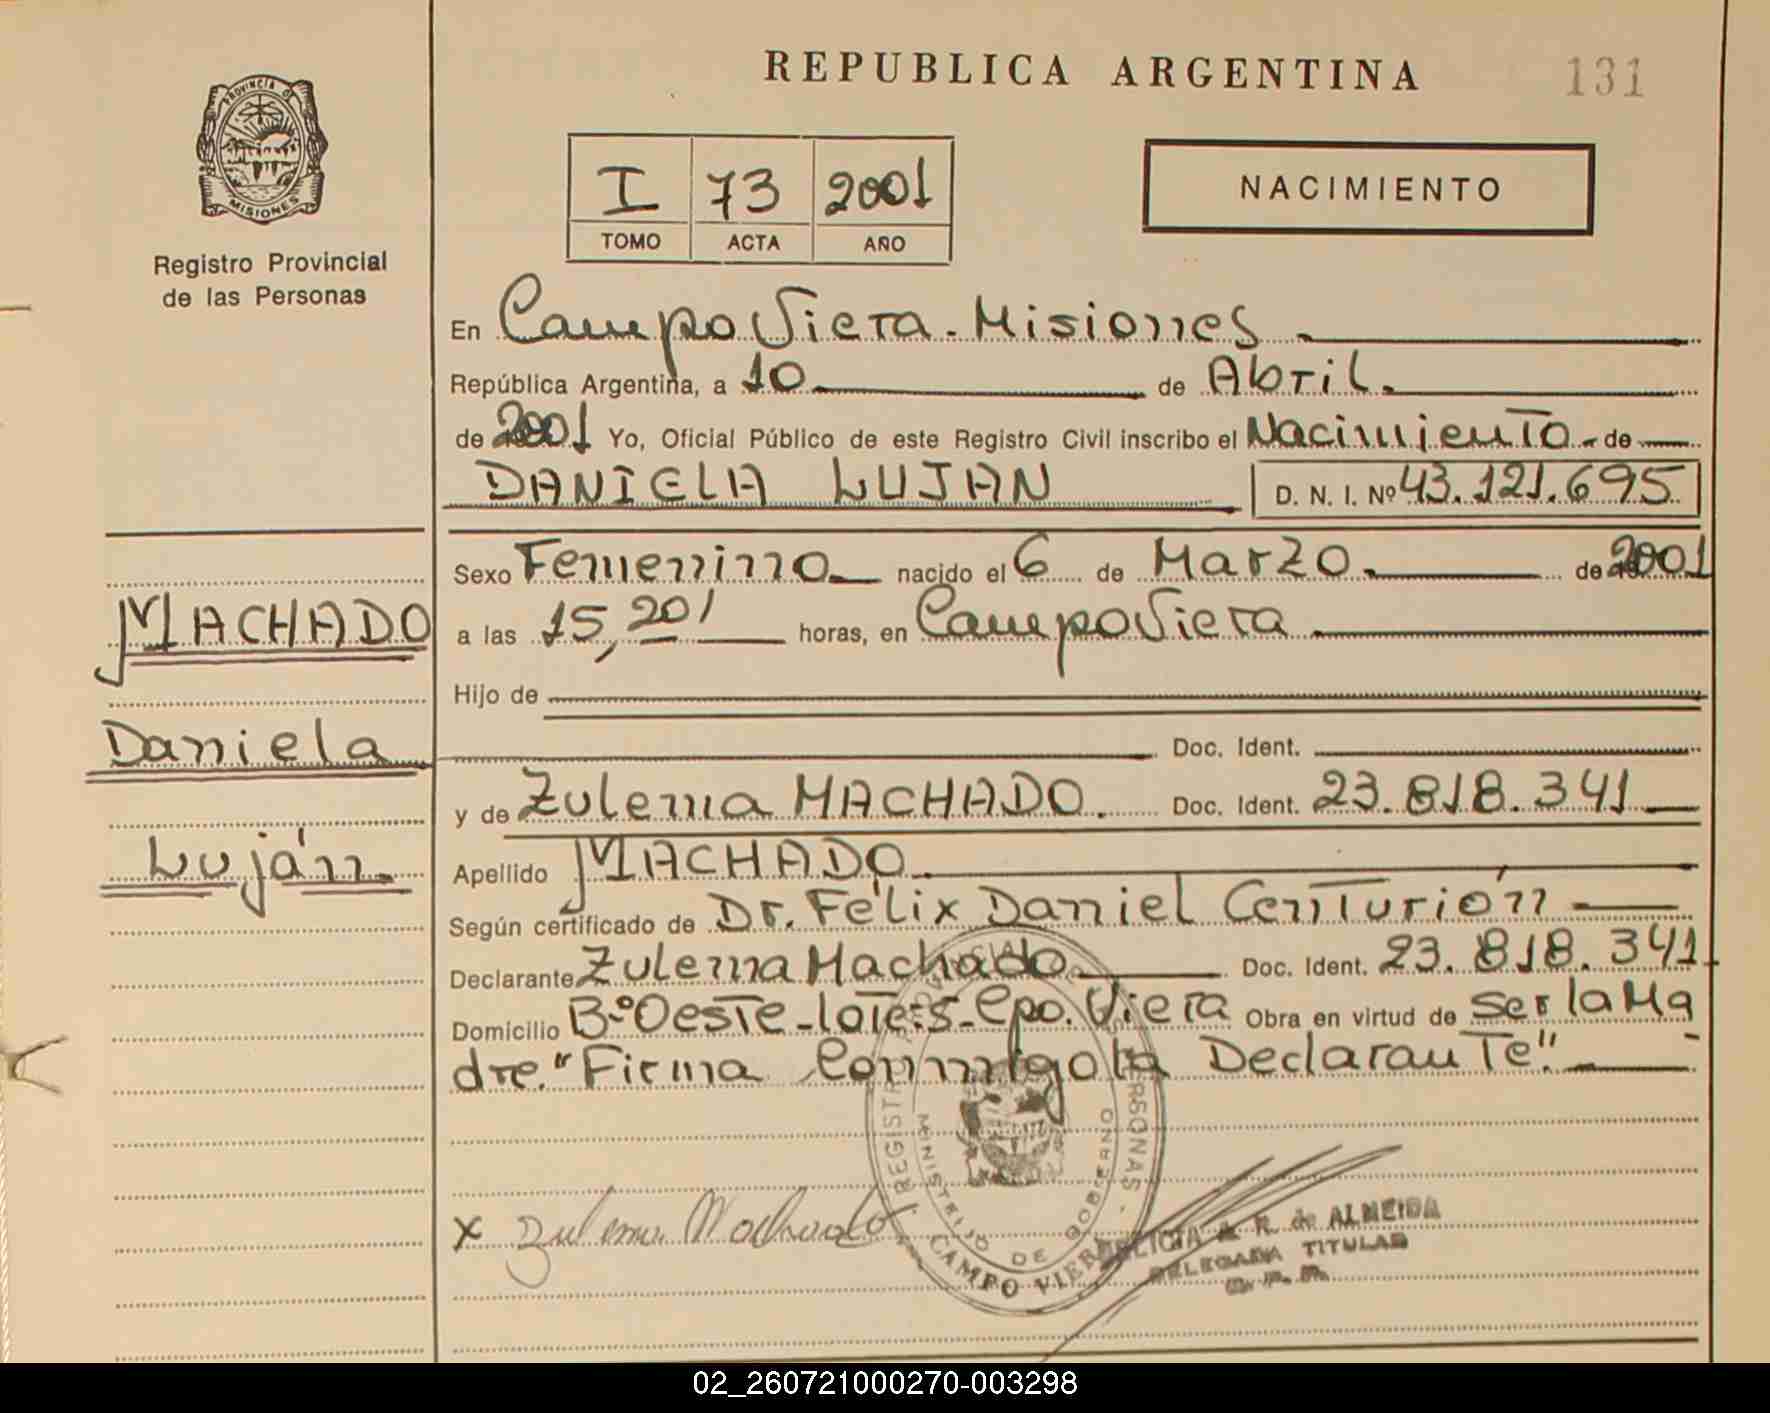 REPUBLICA ARGENTINA
131
PROVINCIA DE
MISIONES
Registro Provincial
de las Personas
I 73 2001
TOMO ACTA AÑO
NACIMIENTO
En Campo Viera - Misiones.
República Argentina, a 10 de Abril.
de 2001 Yo, Oficial Público de este Registro Civil inscribo el Nacimiento - de
DANIELA LUJAN D. N. I. Nº 43.121.695
Sexo Femenino nacido el 6 de Marzo. de 2001
MACHADO
a las 15,20' horas, en Campo Viera
Hijo de
Daniela
Doc. Ident.
y de Zulema MACHADO. Doc. Ident. 23.818.341
Luján.
Apellido MACHADO.
Según certificado de Dr. Félix Daniel Centurión
Declarante Zulema Machado Doc. Ident. 23.818.341
Domicilio Bº Oeste - lote: 5 - Cpo. Viera Obra en virtud de ser la Ma
dre. "Firma Conmigo la Declarante".
REGISTRO PROVINCIAL DE LAS PERSONAS
MINISTERIO DE GOBIERNO
CAMPO VIERA
x Zulema Machado
A. R. de ALMEIDA
DELEGADA TITULAR
02_260721000270-003298